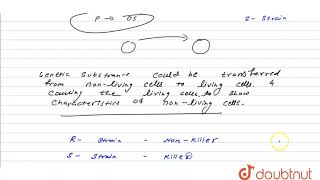 P → DS
S - Strain
Genetic Substance could be transferred
from non-living cells to living cells &
causing the living cells to show
characteristics of non-living cells.
R - Strain - Non-Killer
S - Strain - Killer
doubtnut